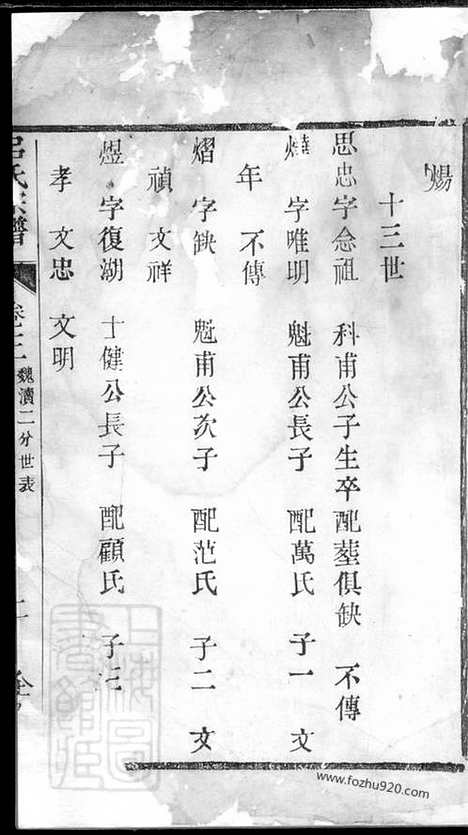 煬
十三世
思忠字念祖　科甫公子生卒配塟俱缺　不傳
字唯明　魁甫公長子　配萬氏　子一　文
年　不傳
熠　字缺　魁甫公次子　配范氏　子二　文
禎　文祥
煜　字復湖　士健公長子　配顧氏　子三
孝　文忠　文明
呂氏宗譜　卷之三　魏瀆二分世表　二
www.fozhu920.com